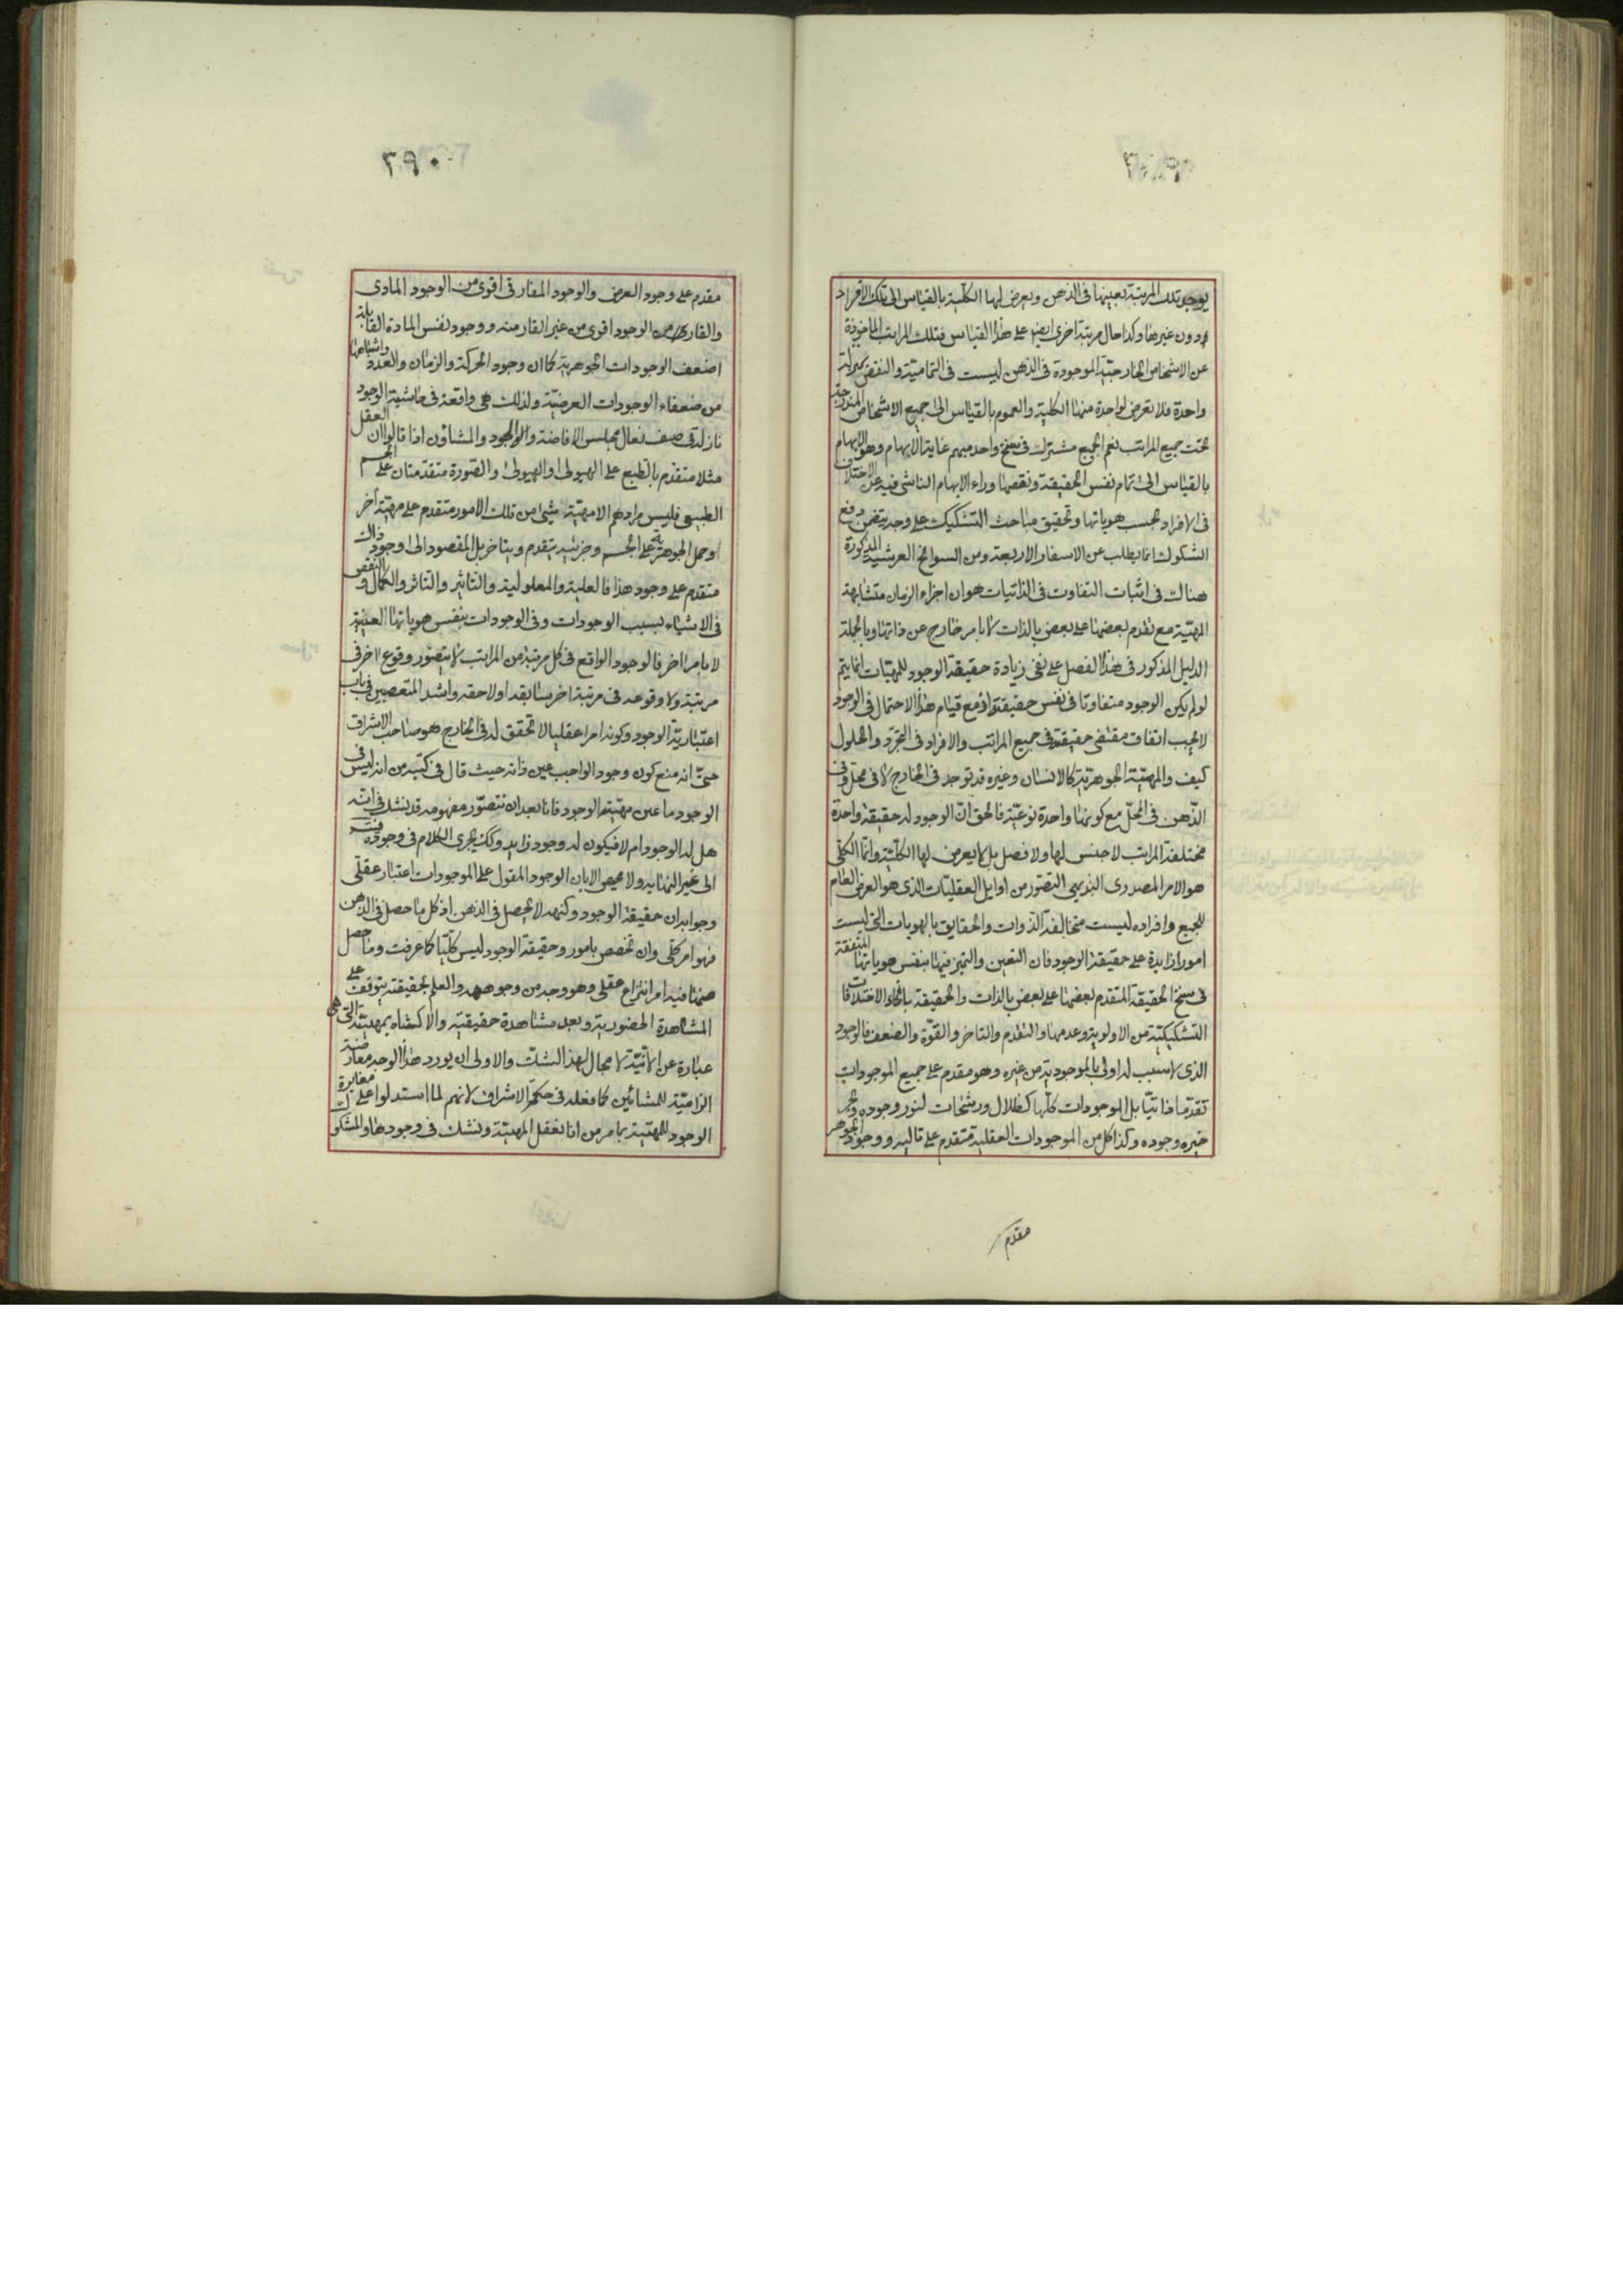 يوجد تلك المرتبة بعينها فى الذهن ويعرض لها الكلية بالقياس الى تلك الافراد
دون غيرها وكذا حال مرتبة اخرى ايض على هذا القياس فتلك المراتب الماخوذة
عن الاشخاص الخارجية الموجودة فى الذهن ليست فى التمامية والنقص كمرتبة
واحدة فلا تعرض لواحدة منها الكلية والعموم بالقياس الى جميع الاشخاص المندرجة
تحت جميع المراتب نعم الجميع مشترك فى سنخ واحد مبهم غاية الابهام وهو الابهام
بالقياس الى تمام نفس الحقيقة ونقصها وراء الابهام الناشى فيه عن الاختلاف
فى الافراد بحسب هوياتها وتحقيق مباحث التشكيك على وجه يتضمن دفع
الشكوك انما يطلب عن الاسفار الاربعة ومن السوانح العرشيه المذكورة
هناك فى اثبات التفاوت فى الذاتيات هو ان اجزاء الزمان متشابهة
المهية مع تقدم بعضها على بعض بالذات لا بامر خارج عن ذاتها وبالجملة
الدليل المذكور فى هذا الفصل على نفى زيادة حقيقة الوجود للمهيات انما يتم
لو لم يكن الوجود متفاوتا فى نفس حقيقته اذ مع قيام هذا الاحتمال فى الوجود
لا يجب اتفاق مقتضى حقيقته فى جميع المراتب والافراد فى التجرد والحلول
كيف والمهية الجوهرية كالانسان وغيره قد توجد فى الخارج لا فى محل وفى
الذهن فى المحل مع كونها واحدة نوعية فالحق ان الوجود له حقيقة واحدة
مختلفة المراتب لا جنس لها ولا فصل بل لا يعرض لها الكلية وانما الكلى
هو الامر المصدرى البديهى التصور من اوايل العقليات الذى هو العرض العام
للجميع وافراده ليست متخالفة الذوات والحقايق بالهويات التى ليست
امورا زايدة على حقيقة الوجود فان التعين والتميز فيها بنفس هوياتها المتفقة
فى سنخ الحقيقة المتقدم بعضها على بعض بالذات والحقيقة بانحاء الاختلافات
التشكيكية من الاولوية وعدمها والتقدم والتاخر والقوة والضعف فالوجود
الذى لا سبب له اولى بالموجودية من غيره وهو مقدم على جميع الموجودات
تقدما ذاتيا بل الموجودات كلها كظلال ورشحات لنور وجوده وبحر
خيره وجوده وكذا كل من الموجودات العقلية متقدم على تاليه ووجود الجوهر
مقدم
٣٩٠
مقدم على وجود العرض والوجود المفارقى اقوى من الوجود المادى
والقار من الوجود اقوى من غير القار منه ووجود نفس المادة القابلة
اضعف الوجودات الجوهرية كما ان وجود الحركة والزمان والعدد واشباهها
من ضعفاء الوجودات العرضية ولذلك هى واقعة فى حاشية الوجود
نازلة فى صف نعال مجلس الافاضة والجود والمشاؤن اذا قالوا ان العقل
مثلا متقدم بالطبع على الهيولى او الهيولى والصورة متقدمتان على الجسم
الطبيعى فليس مرادهم الا مهية شئ من تلك الامور متقدم على مهية اخر
او حمل الجوهرية على الجسم وجزئيه بتقدم وبتاخر بل المقصود الى وجود ذاك
متقدم على وجود هذا فالعلية والمعلولية والتاثير والتاثر والكمال والنقص
فى الاشياء بسبب الوجودات وفى الوجودات بنفس هوياتها العينية
لا بامر اخر فالوجود الواقع فى كل مرتبة من المراتب لا يتصور وقوع اخر فى
مرتبة ولا وقوعه فى مرتبة اخر سابقة او لاحقة واشد المتعصبين فى باب
اعتبارية الوجود وكونه امرا عقليا لا تحقق له فى الخارج هو صاحب الاشراق
حتى انه منع كون وجود الواجب عين ذاته حيث قال فى كتبه من انه ليس فى
الوجود ما عين مهيته الوجود فانا بعد ان نتصور مفهومه قد نشك فى انه
هل له الوجود ام لا فيكون له وجود زايد وكك يجرى الكلام فى وجوده فيتسه
الى غير النهايه ولا محيص الا بان الوجود المقول على الموجودات اعتبار عقلى
وجوابه ان حقيقة الوجود وكنهه لا يحصل فى الذهن اذ كل ما حصل فى الذهن
فهو امر كلى وان تخصص بامور وحقيقة الوجود ليس كليا كما عرفت وما حصل
منها فيه امر انتزاع عقلى وهو وجه من وجوهه والعلم بحقيقته يتوقف على
المشاهدة الحضورية وبعد مشاهدة حقيقيته والاكتناه بمهيته التى هى
عبارة عن الانية لا مجال لهذا الشك والاولى ان يورد هذا الوجه معارضة
الزامية للمشائين كما فعله فى حكمة الاشراق لانهم لما استدلوا على مغايرة
الوجود للمهية بما مر من انا نعقل المهية ونشك فى وجودها والمشكوك